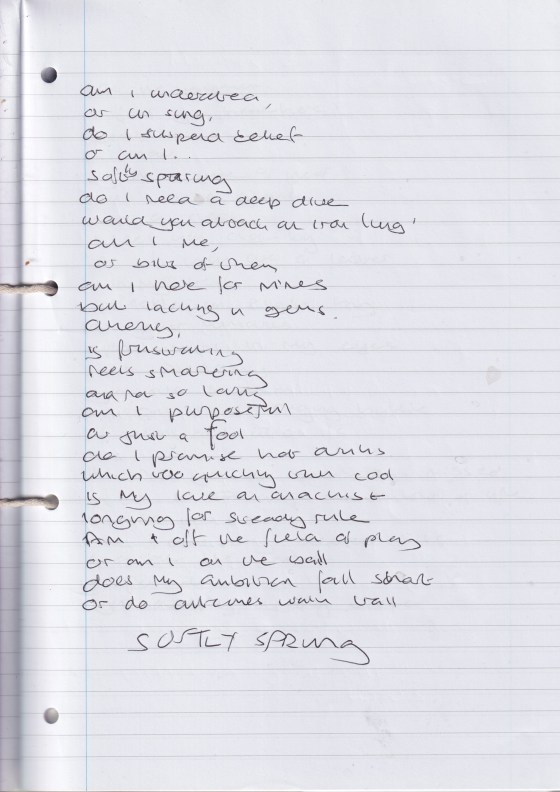 am I underfed,
or un sung,
do I suspend belief
or am I..
softly sprung
do I need a deep dive
would you attach an iron lung
am I me,
or bits of them
am I here for mines
but lacking in gems.
is frustrating
feels smothering
and so long
am I purposeful
or just a fool
do I promise hot drinks
which too quickly turn cool
is my love an anarchist
longing for steady rule
Am I off the field of play
or am I on the ball
does my ambition fall short
or do outcomes warn tall
SOFTLY SPRUNG